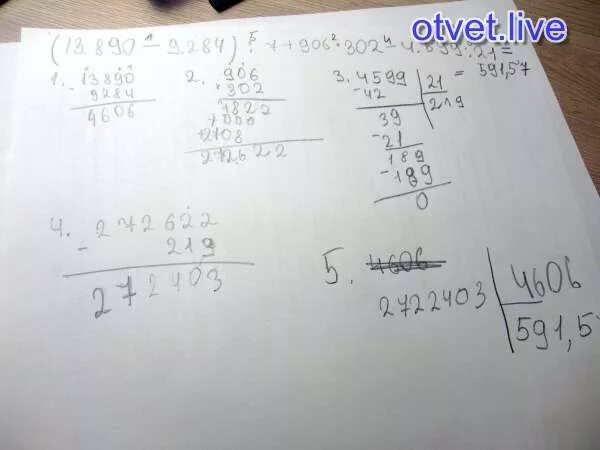 otvet.live
(13.890 - 9284) : 7 + 906 · 302 - 4.599 : 21 =
= 591,57
1. 13890
- 9284
4606
2. 906
· 302
1822
+ 000
+ 2708
272622
3. 4599 | 21
- 42 | 219
39
- 21
189
- 189
0
4. 272622
- 219
272403
5. 4606
2722403 | 4606
591,5